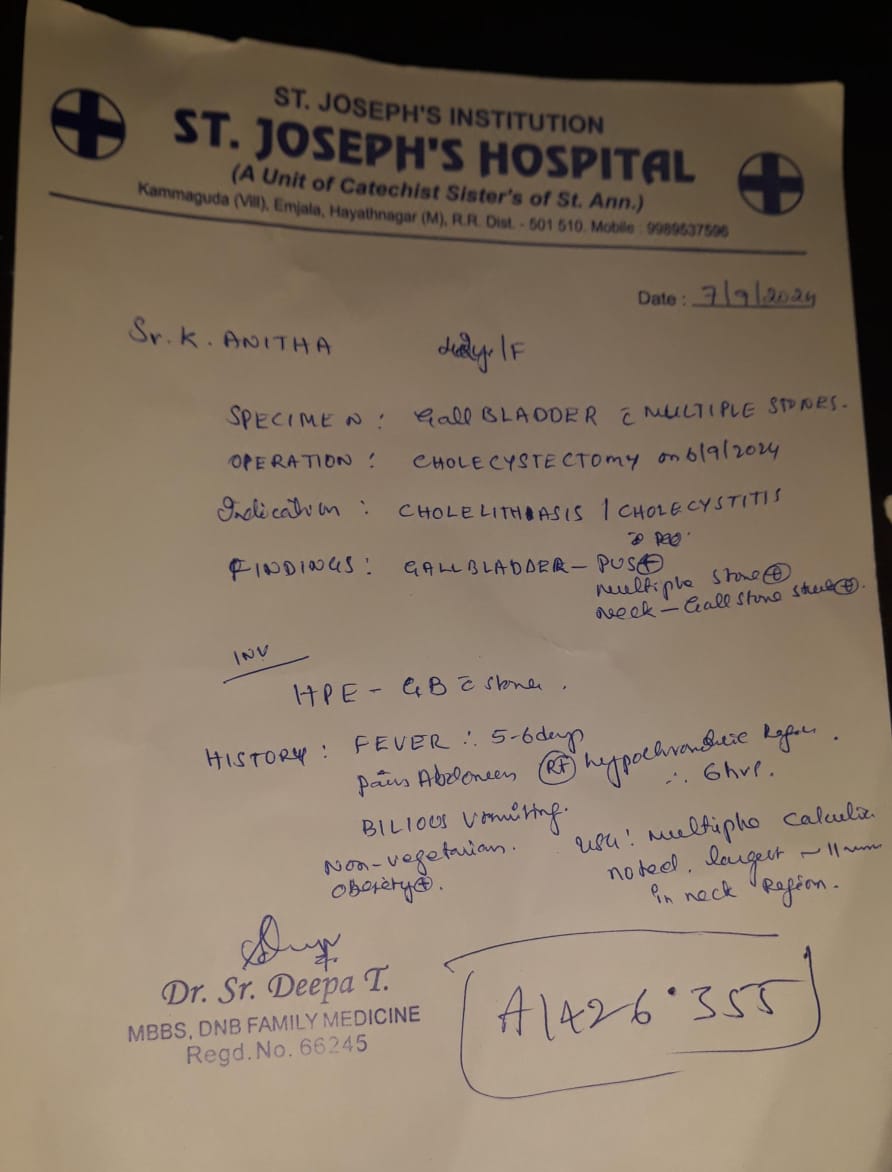 ST. JOSEPH'S INSTITUTION
ST. JOSEPH'S HOSPITAL
(A Unit of Catechist Sister's of St. Ann.)
Kammaguda (Vill), Emjala, Hayathnagar (M), R.R. Dist. - 501 510. Mobile : 9989537596
Date : 7/9/2024
Sr. K. ANITHA /F
SPECIMEN : Gall BLADDER c̄ MULTIPLE STONES.
OPERATION : CHOLECYSTECTOMY on 6/9/2024
Indication : CHOLELITHIASIS / CHOLECYSTITIS
FINDINGS : GALLBLADDER – PUS⊕
multiple stone⊕
neck – Gall stone ⊕.
INV
HPE – GB c̄ stone.
HISTORY : FEVER ∴ 5-6days
Pain Abdomen RT hypochrondric Region.
∴ 6hrs.
BILIOUS Vomiting.
Non-vegetarian.
Obesity⊕.
USG: multiple calculi
noted, largest ~ 11mm
in neck Region.
Dr. Sr. Deepa T.
MBBS, DNB FAMILY MEDICINE
Regd. No. 66245
A1426·355